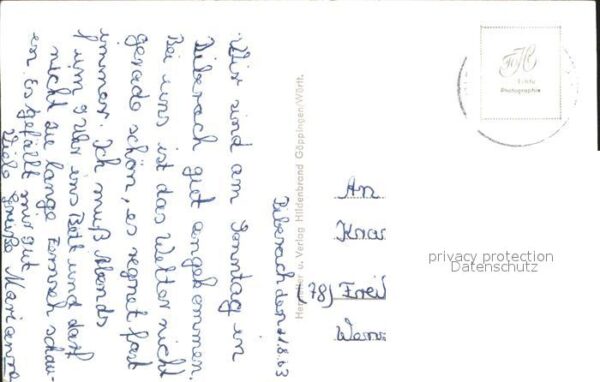 Biberach den 21.8.63
Wir sind am Sonntag in
Biberach gut angekommen.
Bei uns ist das Wetter nicht
gerade schön, es regnet fast
immer. Ich muß Abends
um 9 Uhr ins Bett und darf
nicht so lange Fernseh schau-
en. Es gefällt mir gut.
Viele Grüße Marianne
Hersteller u. Verlag Hildenbrand Göppingen/Württ.
Echte
Photographie
An
(78)
privacy protection
Datenschutz